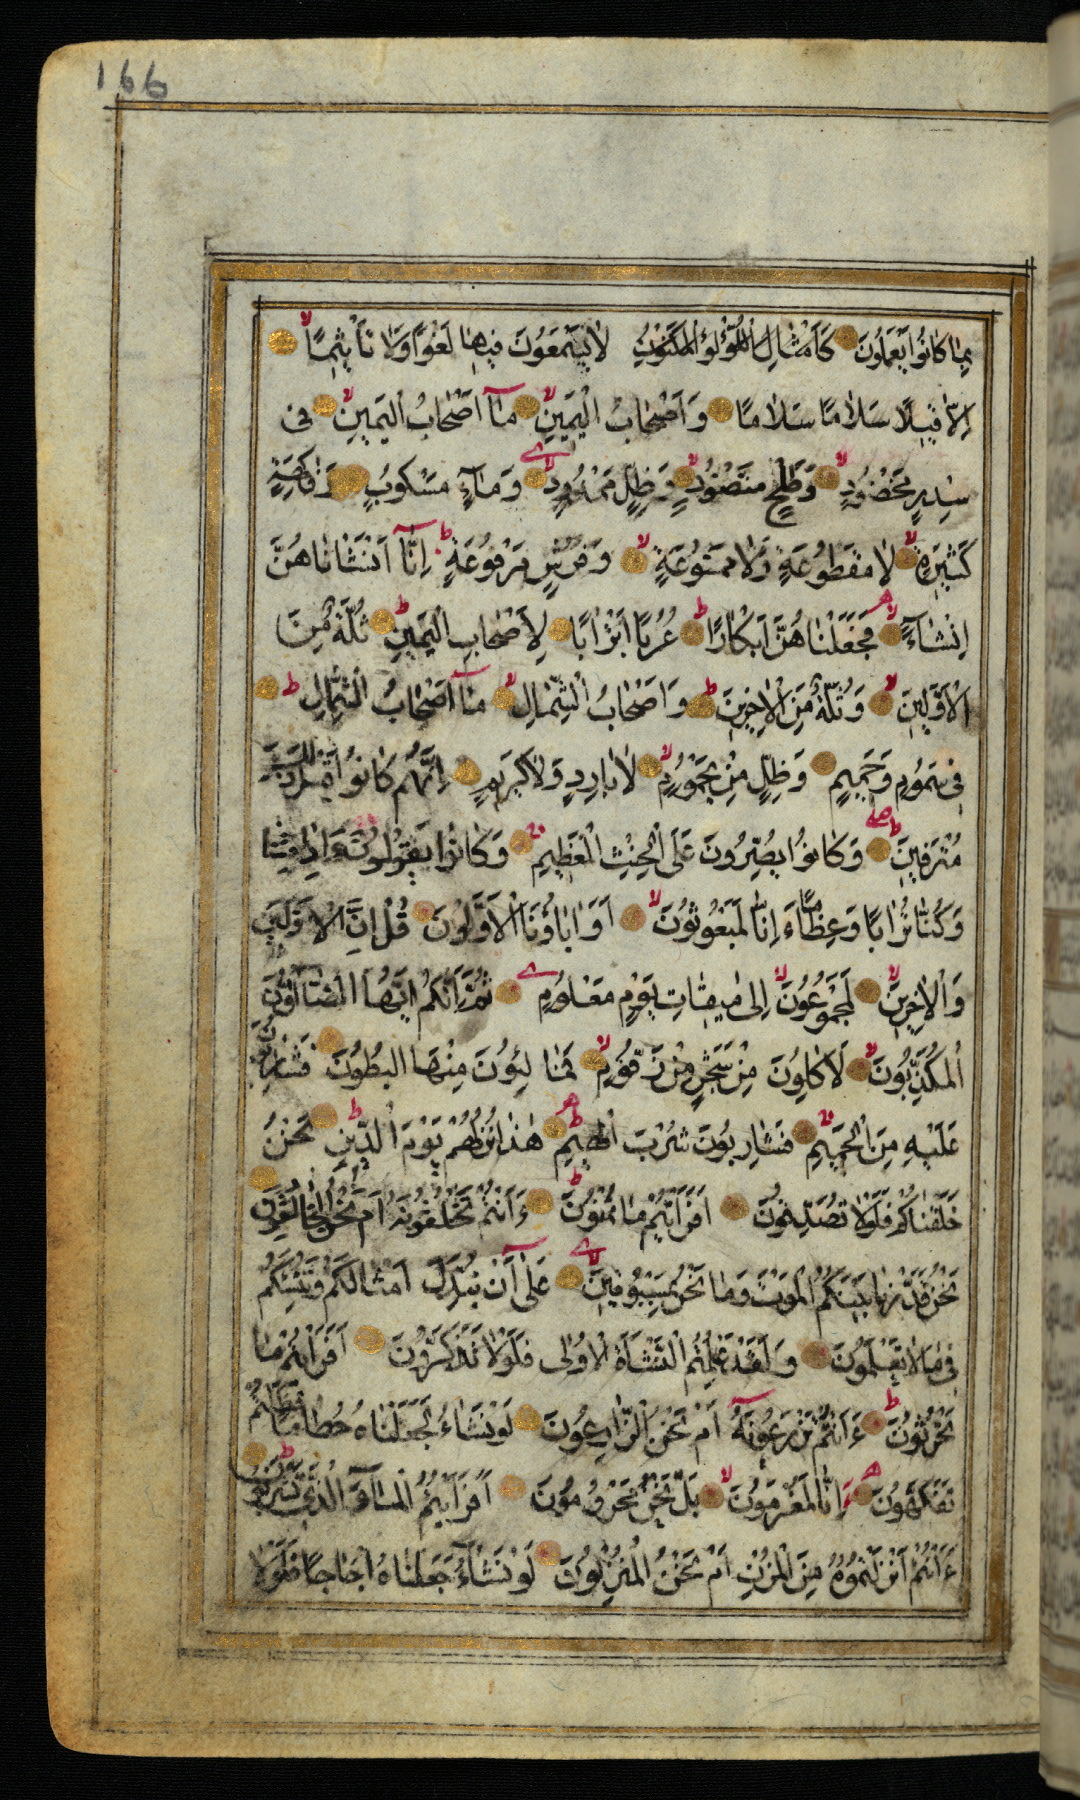 166
بِمٰا كٰانُوا يَعْمَلُونَ كَاَمْثٰالِ اللُّؤْلُؤِ الْمَكْنُونِ لٰا يَسْمَعُونَ فِيهٰا لَغْوًا وَلٰا تَأْثِيمًا
اِلّٰا قِيلًا سَلٰامًا سَلٰامًا وَاَصْحٰابُ الْيَمِينِ مٰآ اَصْحٰابُ الْيَمِينِ فِى
سِدْرٍ مَخْضُودٍ وَطَلْحٍ مَنْضُودٍ وَظِلٍّ مَمْدُودٍ وَمٰآءٍ مَسْكُوبٍ وَفٰاكِهَةٍ
كَثِيرَةٍ لٰا مَقْطُوعَةٍ وَلٰا مَمْنُوعَةٍ وَفُرُشٍ مَرْفُوعَةٍ اِنّٰآ اَنْشَأْنٰاهُنَّ
اِنْشٰآءً فَجَعَلْنٰاهُنَّ اَبْكٰارًا عُرُبًا اَتْرٰابًا لِاَصْحٰابِ الْيَمِينِ ثُلَّةٌ مِنَ
الْاَوَّلِينَ وَثُلَّةٌ مِنَ الْاٰخِرِينَ وَاَصْحٰابُ الشِّمٰالِ مٰآ اَصْحٰابُ الشِّمٰالِ
فِى سَمُومٍ وَحَمِيمٍ وَظِلٍّ مِنْ يَحْمُومٍ لٰا بٰارِدٍ وَلٰا كَرِيمٍ اِنَّهُمْ كٰانُوا قَبْلَ ذٰلِكَ
مُتْرَفِينَ وَكٰانُوا يُصِرُّونَ عَلَى الْحِنْثِ الْعَظِيمِ وَكٰانُوا يَقُولُونَ ءَاِذٰا مِتْنٰا
وَكُنّٰا تُرٰابًا وَعِظٰامًا ءَاِنّٰا لَمَبْعُوثُونَ اَوَاٰبٰاؤُنَا الْاَوَّلُونَ قُلْ اِنَّ الْاَوَّلِينَ
وَالْاٰخِرِينَ لَمَجْمُوعُونَ اِلٰى مِيقٰاتِ يَوْمٍ مَعْلُومٍ ثُمَّ اِنَّكُمْ اَيُّهَا الضّٰآلُّونَ
الْمُكَذِّبُونَ لَاٰكِلُونَ مِنْ شَجَرٍ مِنْ زَقُّومٍ فَمٰالِئُونَ مِنْهَا الْبُطُونَ فَشٰارِبُونَ
عَلَيْهِ مِنَ الْحَمِيمِ فَشٰارِبُونَ شُرْبَ الْهِيمِ هٰذٰا نُزُلُهُمْ يَوْمَ الدِّينِ نَحْنُ
خَلَقْنٰاكُمْ فَلَوْلٰا تُصَدِّقُونَ اَفَرَاَيْتُمْ مٰا تُمْنُونَ ءَاَنْتُمْ تَخْلُقُونَهُ اَمْ نَحْنُ الْخٰالِقُونَ
نَحْنُ قَدَّرْنٰا بَيْنَكُمُ الْمَوْتَ وَمٰا نَحْنُ بِمَسْبُوقِينَ عَلٰى اَنْ نُبَدِّلَ اَمْثٰالَكُمْ وَنُنْشِئَكُمْ
فِى مٰا لٰا تَعْلَمُونَ وَلَقَدْ عَلِمْتُمُ النَّشْاَةَ الْاُولٰى فَلَوْلٰا تَذَكَّرُونَ اَفَرَاَيْتُمْ مٰا
تَحْرُثُونَ ءَاَنْتُمْ تَزْرَعُونَهُ اَمْ نَحْنُ الزّٰارِعُونَ لَوْ نَشٰاءُ لَجَعَلْنٰاهُ حُطٰامًا فَظَلْتُمْ
تَفَكَّهُونَ اِنّٰا لَمُغْرَمُونَ بَلْ نَحْنُ مَحْرُومُونَ اَفَرَاَيْتُمُ الْمٰآءَ الَّذِى تَشْرَبُونَ
ءَاَنْتُمْ اَنْزَلْتُمُوهُ مِنَ الْمُزْنِ اَمْ نَحْنُ الْمُنْزِلُونَ لَوْ نَشٰآءُ جَعَلْنٰاهُ اُجٰاجًا فَلَوْلٰا